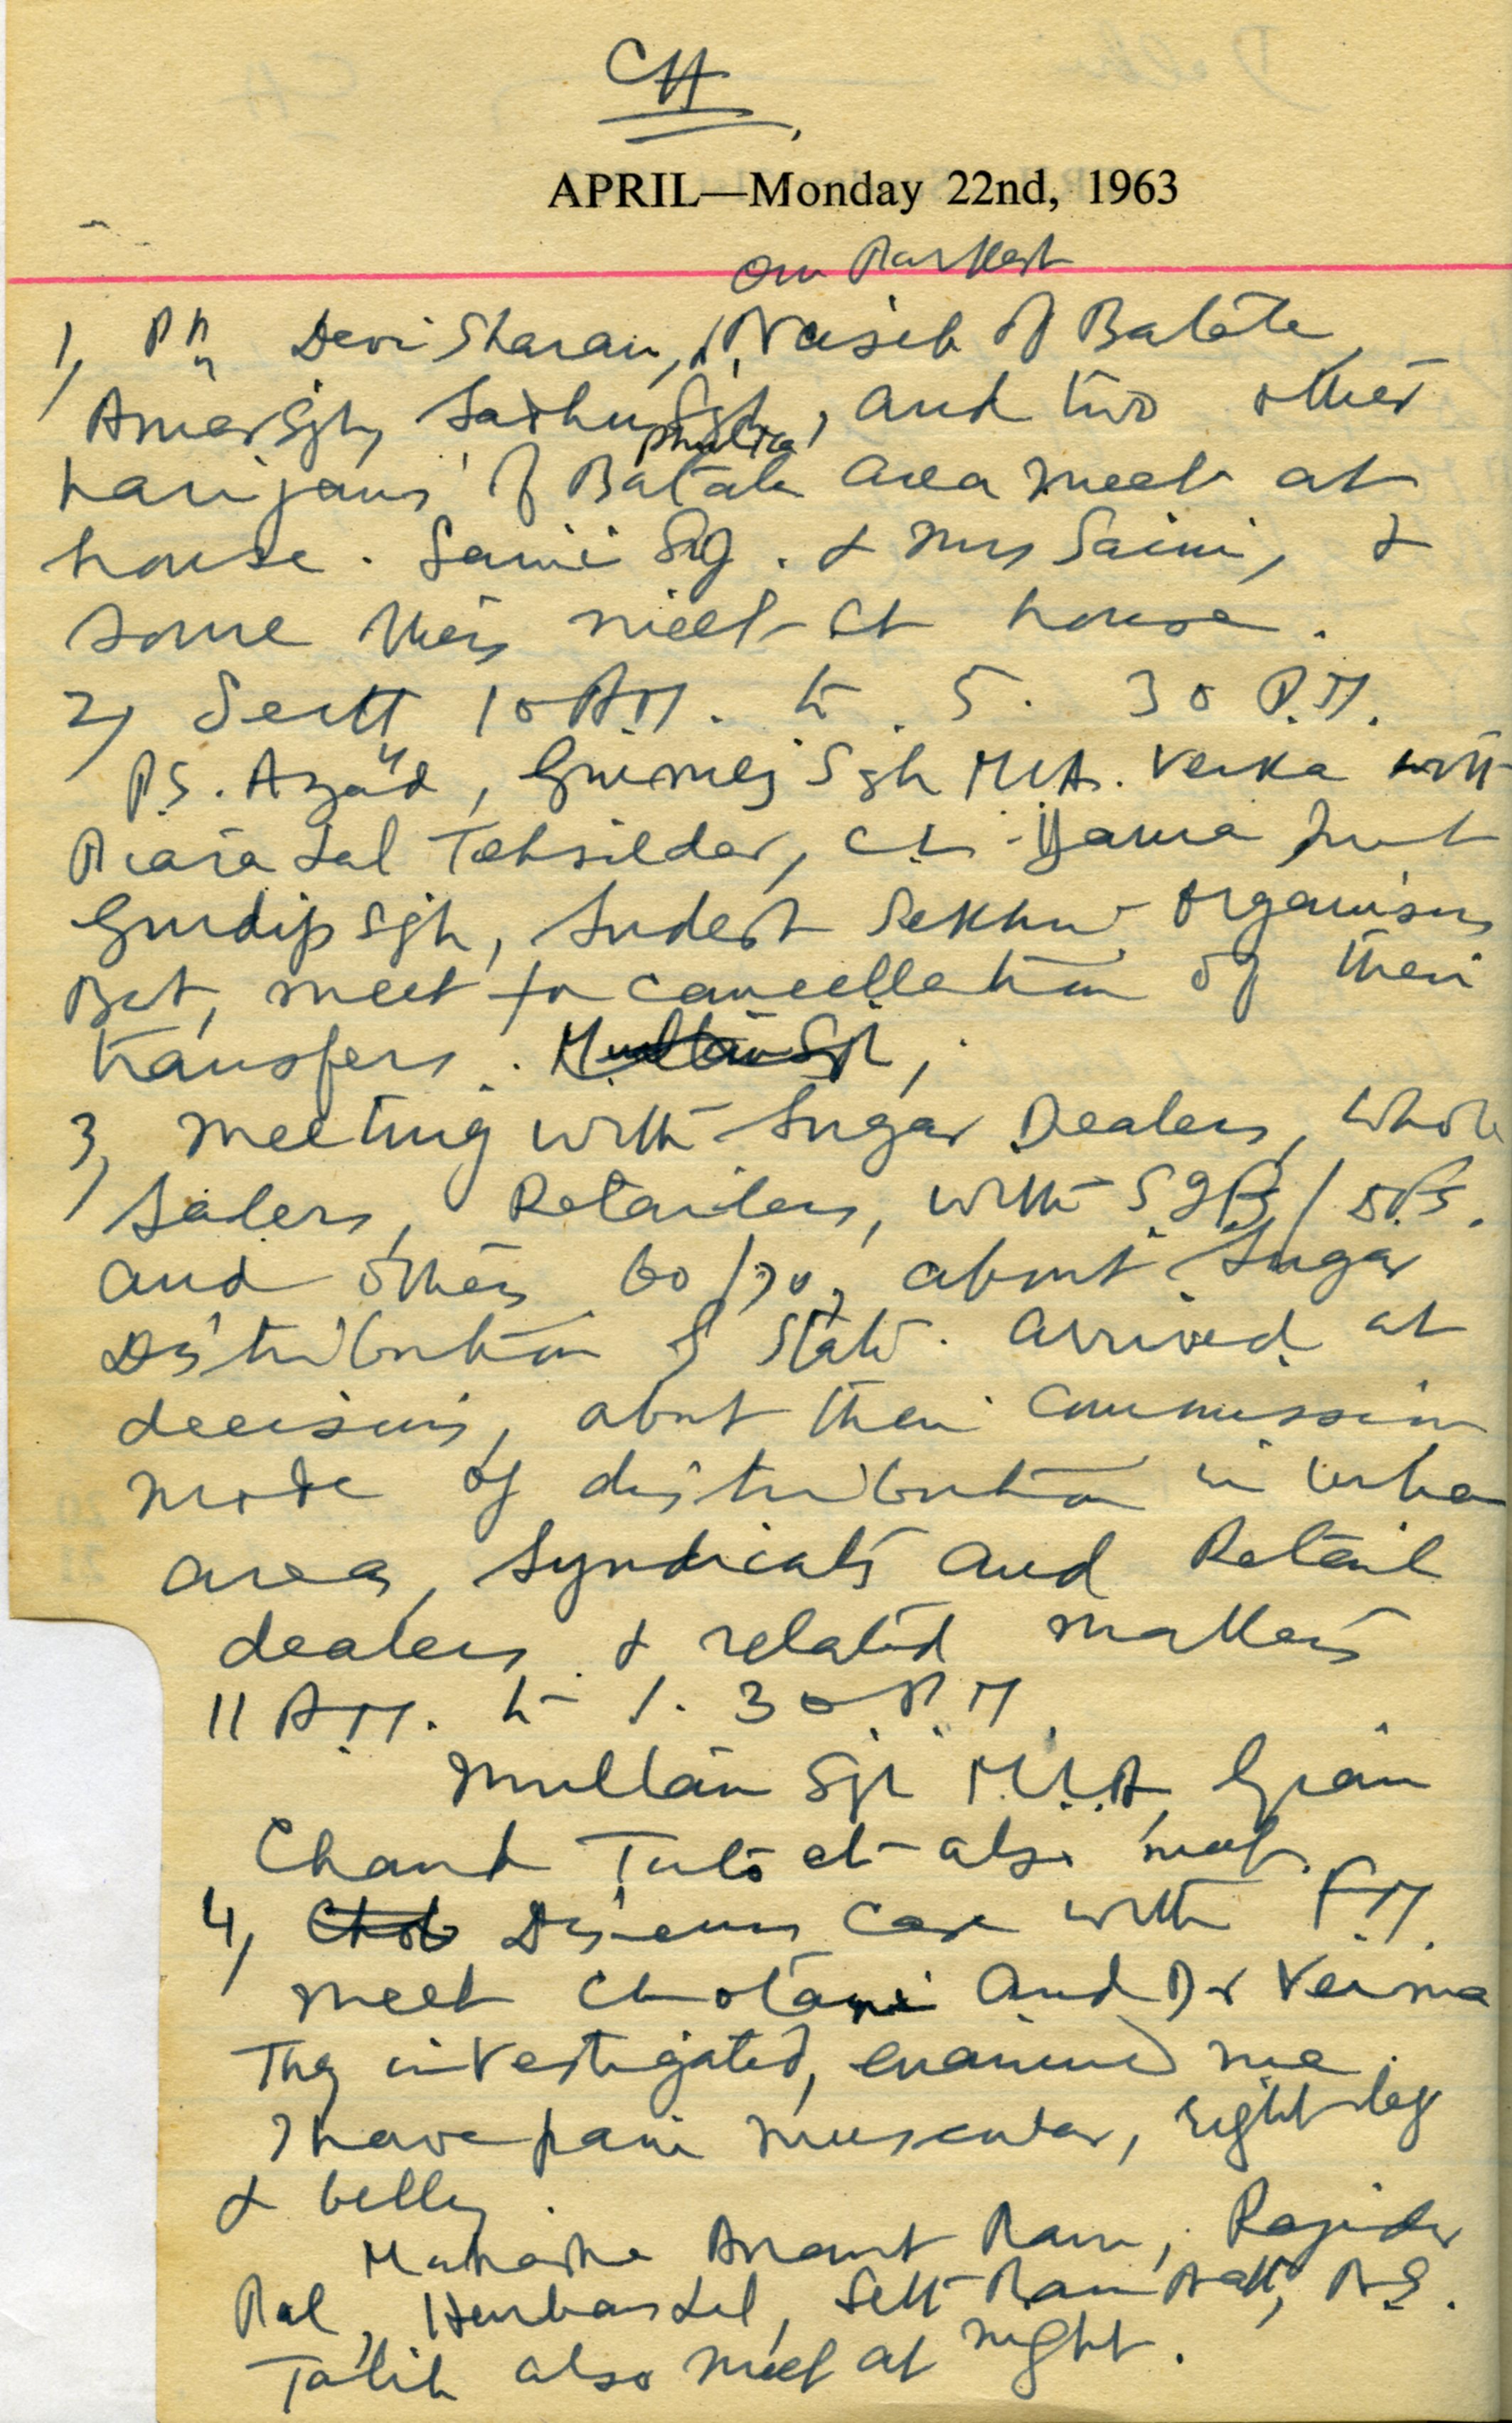 CH
APRIL—Monday 22nd, 1963
Om Parkash
1, Devi Sharan, of Batala,
Amar Sgh, Sadhu Sgh, and two other
harijans of Batala area meet at
house. Saini Sg. & Mrs Saini, &
some others meet at house.
2, Sectt 10 A.M. to 5. 30 P.M.
P.S. Azad, Gurmej Sgh M.L.A. Verka with
Piara Lal Tehsildar,
Gurdip Sgh, organiser
meet for cancellation of their
transfers. Multan Sgh,
3, Meeting with Sugar Dealers, Whole
Salers, Retailers, with
and others 60/70, about Sugar
Distribution of State. Arrived at
decisions, about their commission
mode of distribution in urban
areas, Syndicats and Retail
dealers & related matters
11 A.M. to 1. 30 P.M.
Multan Sgh M.L.A, Gian
Chand also meet.
4, Discuss case with F.M.
meet Chotani and Dr Verma
They investigated, examined me.
I have pain muscular, right leg
& belly.
Mahasha Anant Ram, Rajinder
Pal, Harbans Lal, Seth Ram Nath, P.S.
Talib also meet at night.